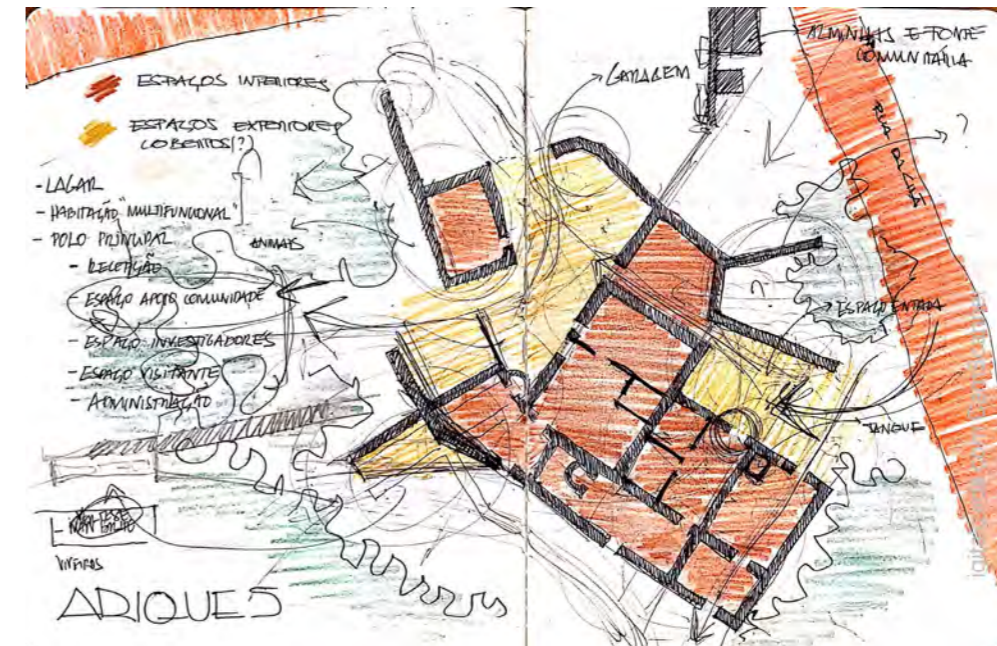 ESPAÇOS INTERIORES
ESPAÇOS EXTERIORES
COBERTOS(?)
- LAGAR
- HABITAÇÃO "MULTIFUNCIONAL"
- POLO PRINCIPAL
- RECEPÇÃO
- ESPAÇO APOIO COMUNIDADE
- ESPAÇO INVESTIGADORES
- ESPAÇO VISITANTE
- ADMINISTRAÇÃO
ANIMAIS
VIVEIROS
ADIQUES
GARAGEM
ALMINHAS E FONTE
COMUNITÁRIA
RUA DA
?
?
ESPAÇO ENTRADA
TANQUE